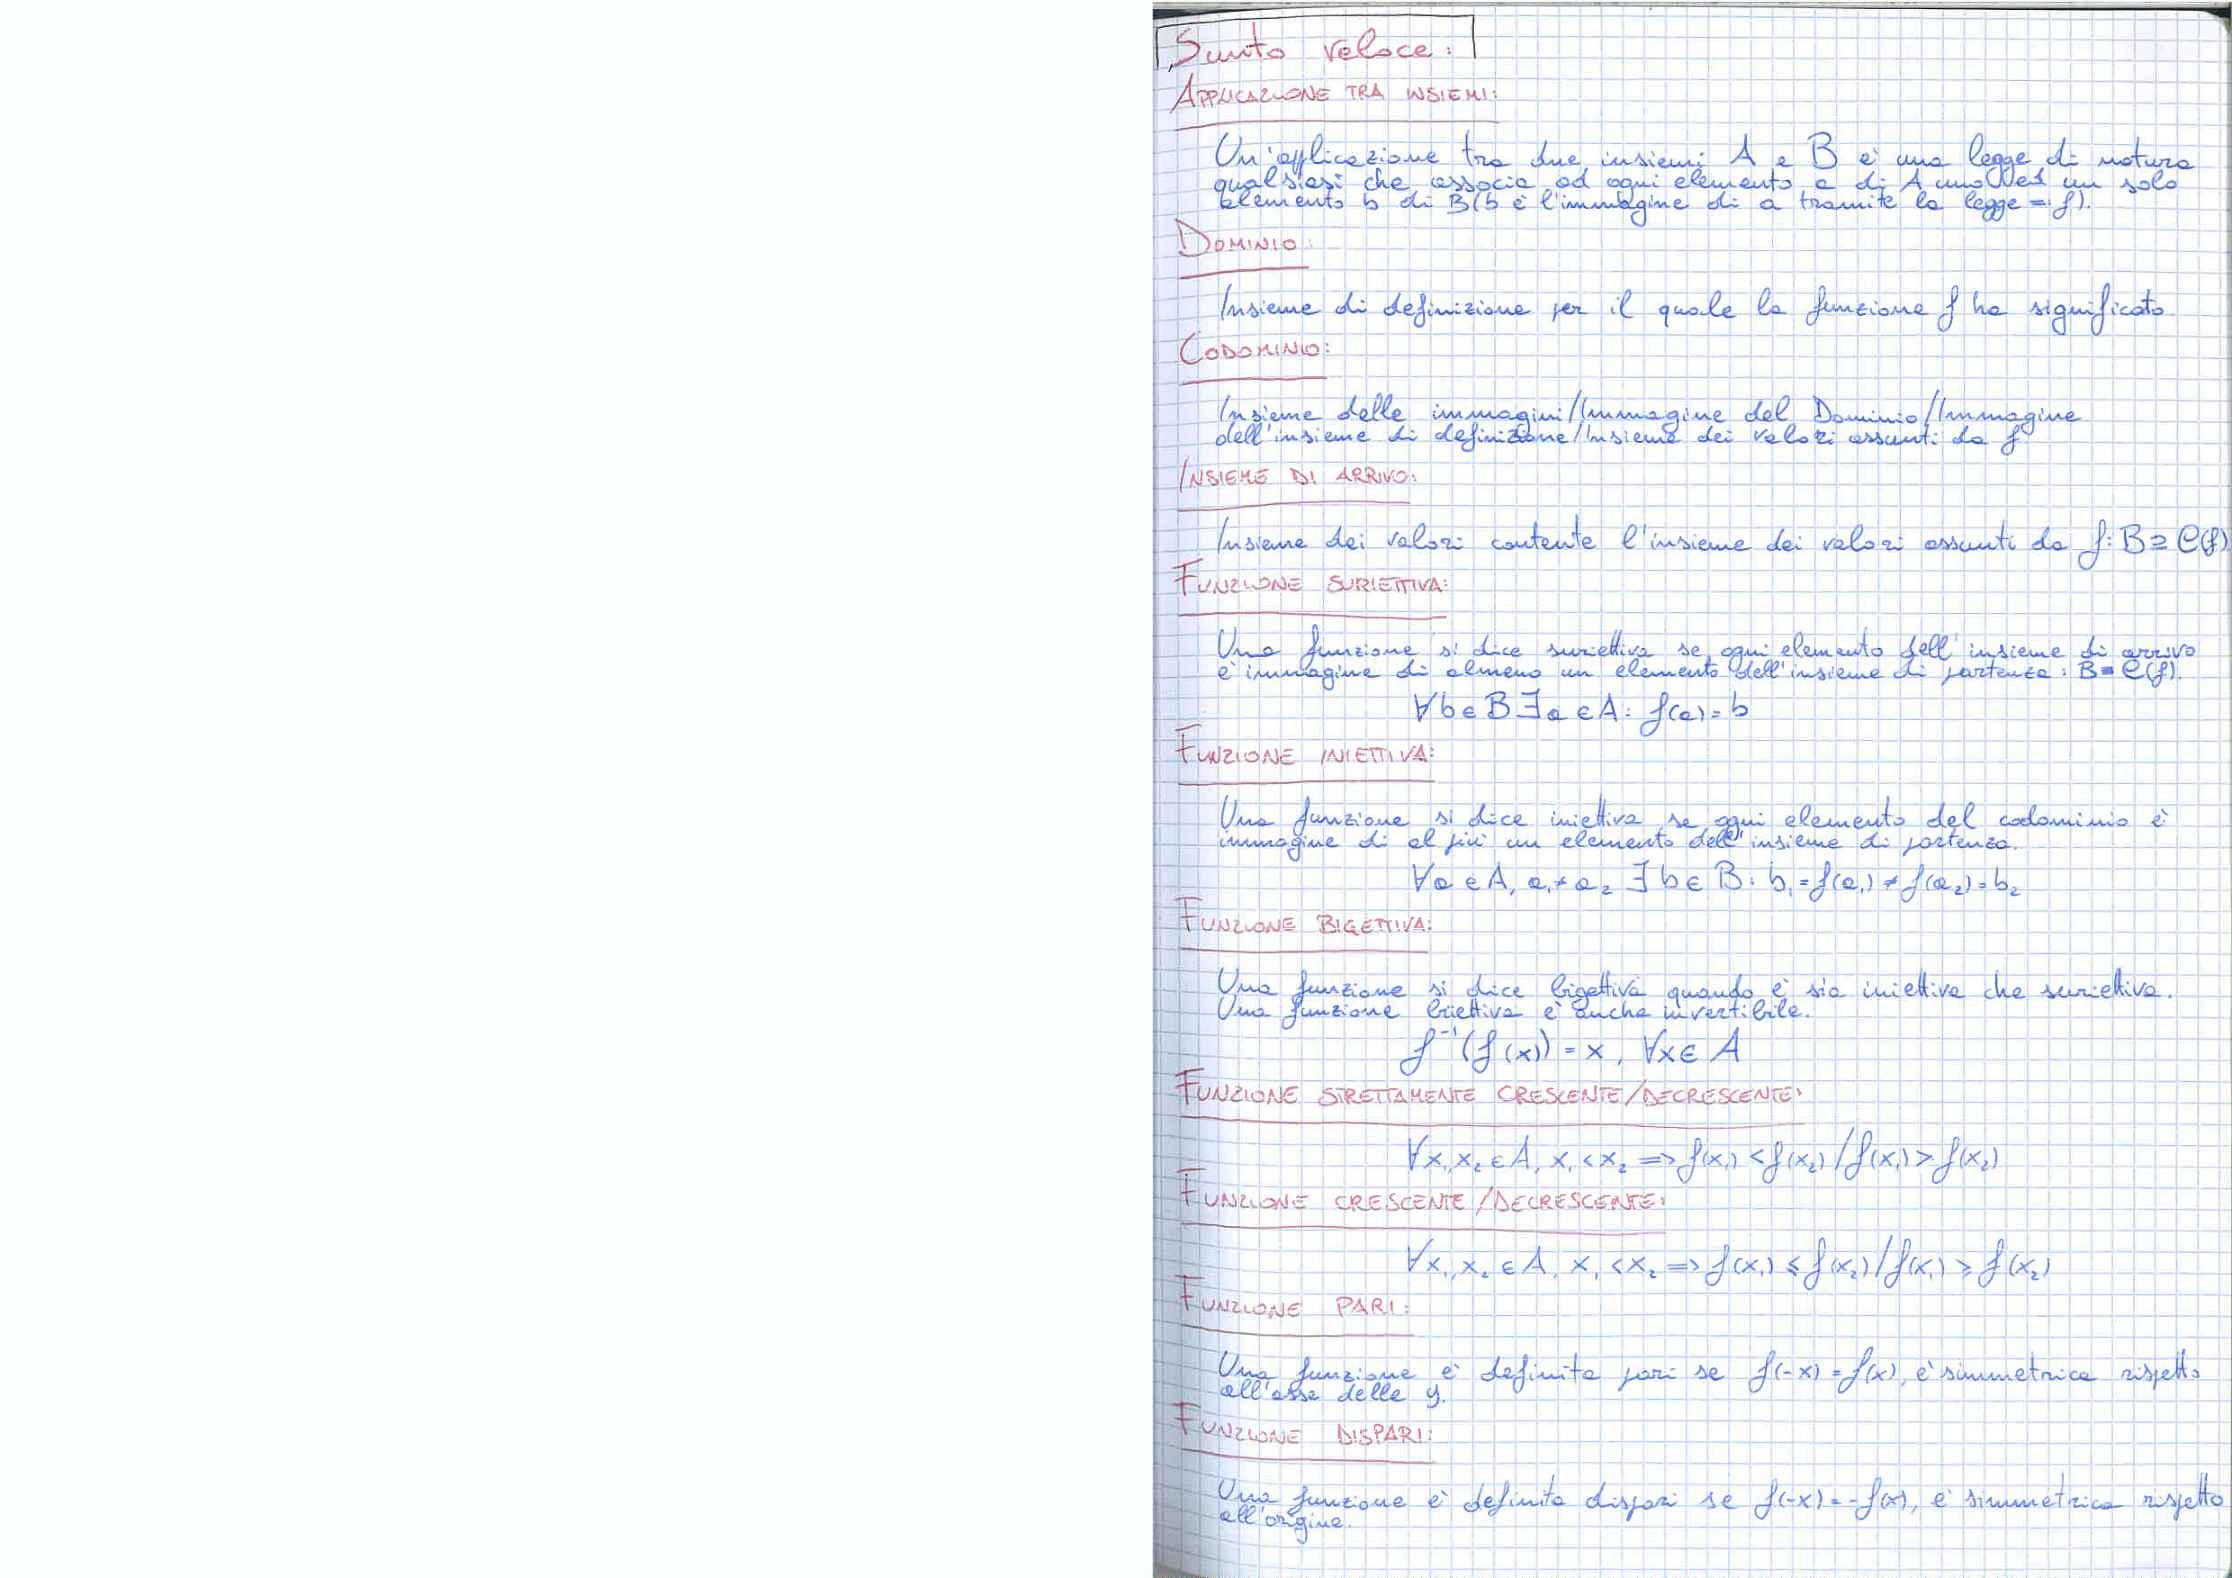 Sunto veloce:
APPLICAZIONE TRA INSIEMI:
Un'applicazione tra due insiemi A e B è una legge di natura
qualsiasi che associa ad ogni elemento a di A uno ed un solo
elemento b di B (b è l'immagine di a tramite la legge =: f).
DOMINIO:
Insieme di definizione per il quale la funzione f ha significato
CODOMINIO:
Insieme delle immagini/Immagine del Dominio/Immagine
dell'insieme di definizione/Insieme dei valori assunti da f
INSIEME DI ARRIVO:
Insieme dei valori contente l'insieme dei valori assunti da f: B ⊇ C(f)
FUNZIONE SURIETTIVA:
Una funzione si dice suriettiva se ogni elemento dell'insieme di arrivo
è immagine di almeno un elemento dell'insieme di partenza: B = C(f).
∀b ∈ B ∃a ∈ A: f(a) = b
FUNZIONE INIETTIVA:
Una funzione si dice iniettiva se ogni elemento del codominio è
immagine di al più un elemento dell'insieme di partenza.
∀a ∈ A, a₁ ≠ a₂ ∃ b ∈ B: b₁ = f(a₁) ≠ f(a₂) = b₂
FUNZIONE BIGETTIVA:
Una funzione si dice bigettiva quando è sia iniettiva che suriettiva.
Una funzione biettiva è anche invertibile.
f⁻¹(f(x)) = x, ∀x ∈ A
FUNZIONE STRETTAMENTE CRESCENTE/DECRESCENTE:
∀x₁, x₂ ∈ A, x₁ < x₂ => f(x₁) < f(x₂) / f(x₁) > f(x₂)
FUNZIONE CRESCENTE/DECRESCENTE:
∀x₁, x₂ ∈ A, x₁ < x₂ => f(x₁) ≤ f(x₂) / f(x₁) ≥ f(x₂)
FUNZIONE PARI:
Una funzione è definita pari se f(-x) = f(x), è simmetrica rispetto
all'asse delle y.
FUNZIONE DISPARI:
Una funzione è definita dispari se f(-x) = -f(x), è simmetrica rispetto
all'origine.